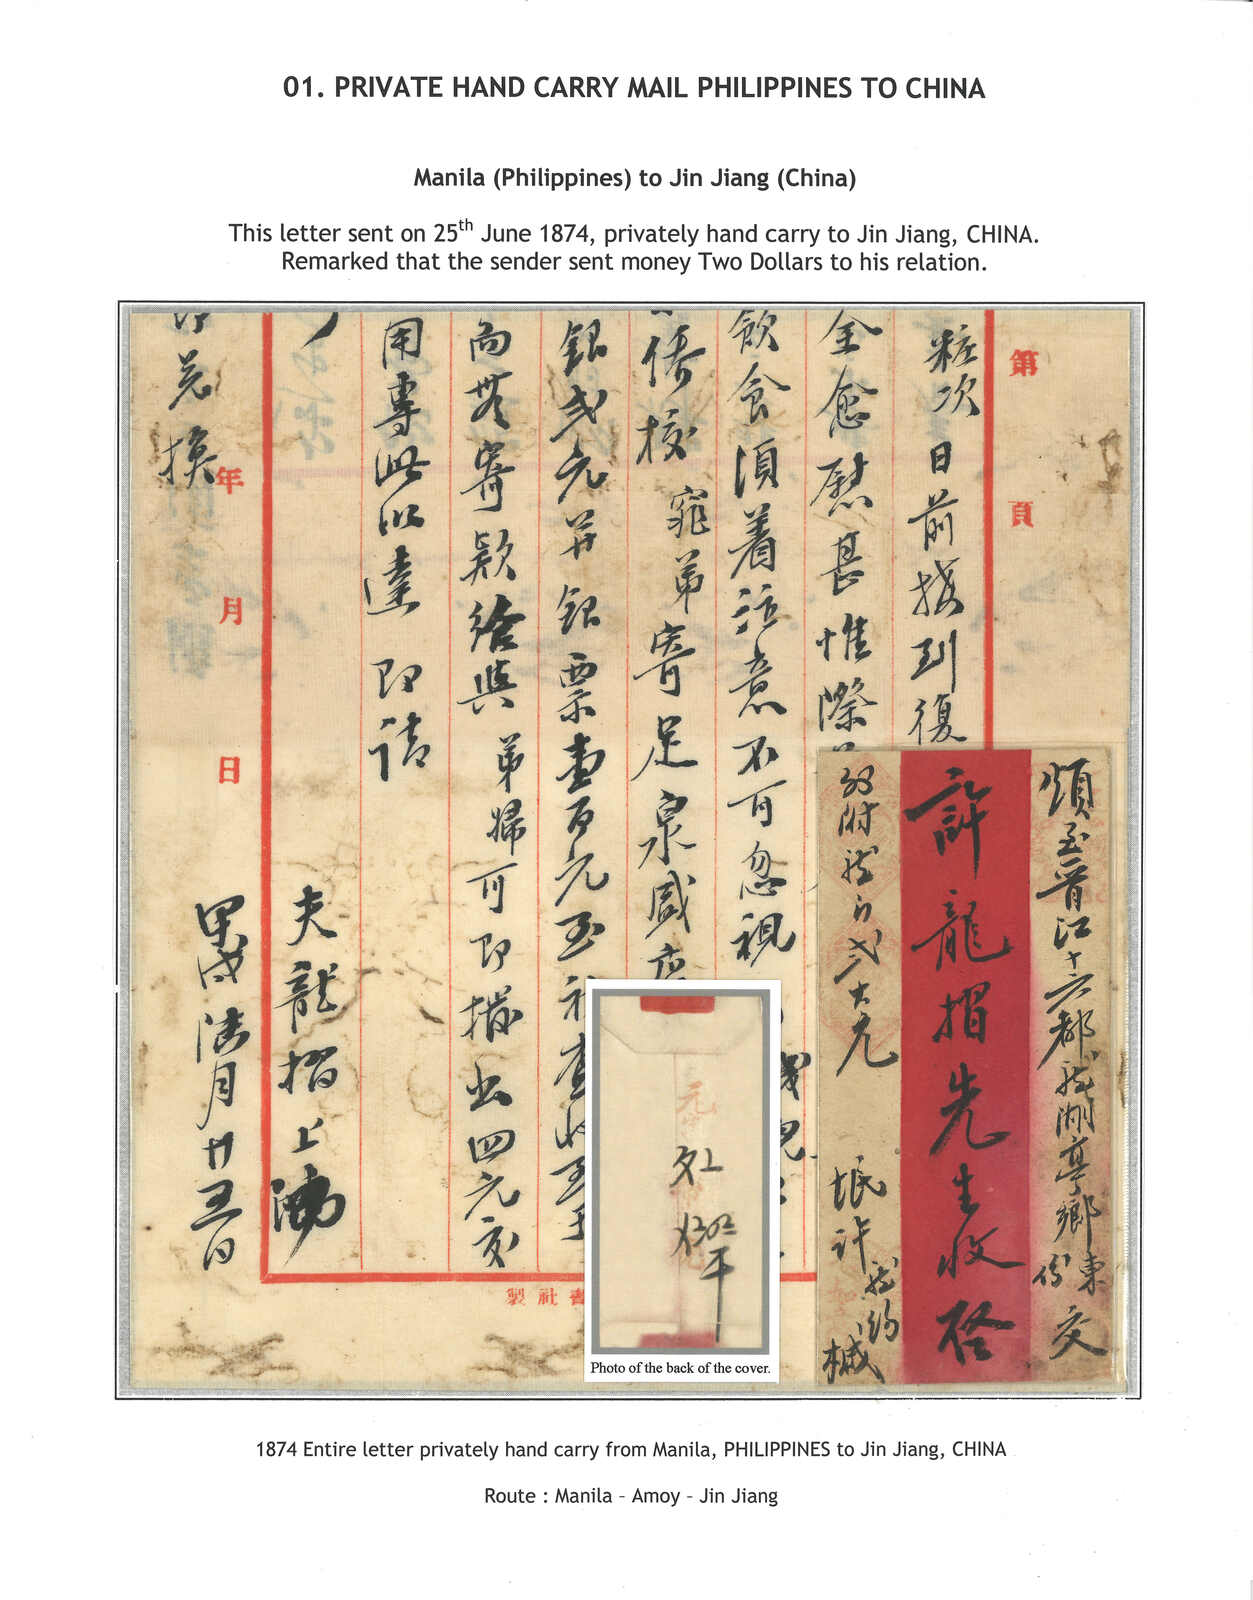 01. PRIVATE HAND CARRY MAIL PHILIPPINES TO CHINA
Manila (Philippines) to Jin Jiang (China)
This letter sent on 25th June 1874, privately hand carry to Jin Jiang, CHINA.
Remarked that the sender sent money Two Dollars to his relation.
第 頁
粧次 日前接到復
全愈慰甚惟際
飲食須着注意不可忽視
倚校 弟寄足泉
銀弍元并銀票壹百元至社查收至于
而無寄款給與弟婦可即撥出四元交
用專此以達 即請
夫龍摺上
年 月 日
兌換
甲戌陸月廿五日
製 社
頌至晋江十六都龍湖亭鄉東份交
許龍摺先生收啓
附龍身弍大元
垊許龍約椷
Photo of the back of the cover.
1874 Entire letter privately hand carry from Manila, PHILIPPINES to Jin Jiang, CHINA
Route : Manila – Amoy – Jin Jiang